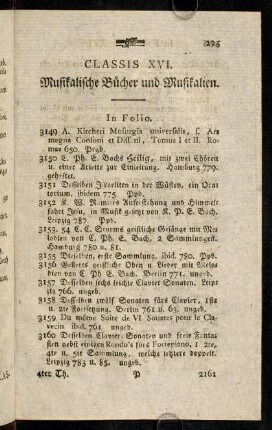 295
CLASSIS XVI.
Musikalische Bücher und Musikalien.
In Folio.
3149 A. Kircheri Musurgia universalis, s. Ars
magna Consoni et Dissoni, Tomus I et II. Ro-
mae 650. Prgb.
3150 C. Ph. E. Bachs Heilig, mit zwey Chören
u. einer Ariette zur Einleitung. Hamburg 779.
geheftet.
3151 Desselben Israeliten in der Wüsten, ein Ora-
torium. ibidem 775. Ppb.
3152 K. W. Ramlers Auferstehung und Himmel-
fahrt Jesu, in Musik gesezt von K. P. E. Bach.
Leipzig 787. Ppb.
3153. 54 C. C. Sturms geistliche Gesänge mit Me-
lodien von C. Ph. E. Bach, 2 Sammlungen.
Hamburg 780 u. 81.
3155 Dieselben, erste Sammlung, ibid. 780. Ppb.
3156 Gellerts geistliche Oden u. Lieder mit Melo-
dien von C. Ph. E. Bach. Berlin 771. ungeb.
3157 Desselben sechs leichte Clavier Sonaten. Leip-
zig 766. ungeb.
3158 Desselben zwölf Sonaten fürs Clavier, 1ste
u. 2te Fortsetzung. Berlin 761 u. 63. ungeb.
3159 Du même Suite de VI. Sonates pour le Cla-
vecin ibid. 761 ungeb.
3160 Desselben Clavier-Sonaten und freie Fantas-
sien nebst einigen Rondo's fürs Fortepiano, 1 2te,
4te u. 5te Sammlung, welche letztere doppelt.
Leipzig 783 u. 85. ungeb.
4ter Th. P 2161